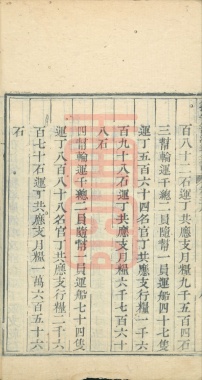 百八十二石運丁共應支月糧九千五百四石
三幫輪運千總一員隨幫一員運船四十七隻
運丁五百六十四名官丁共應支行糧一千六
百九十八石運丁共應支月糧六千七百六十
八石
四幫輪運千總一員隨幫一員運船七十四隻
運丁八百八十八名官丁共應支行糧二千六
百七十石運丁共應支月糧一萬六百五十六
石